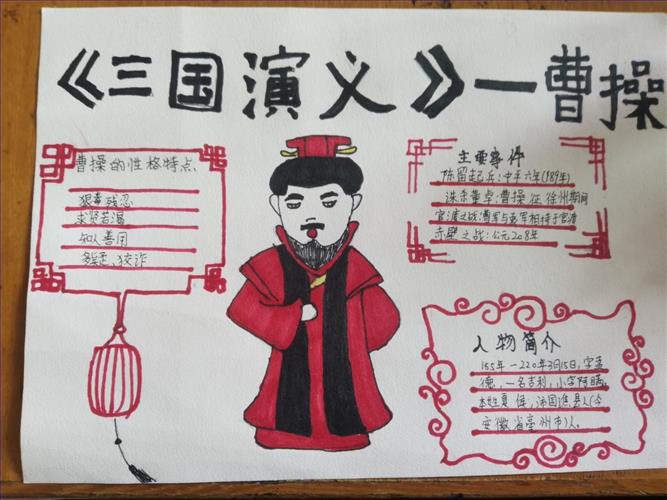 《三国演义》一曹操
曹操的性格特点、
狠毒残忍
求贤若渴
知人善用
多疑、狡诈
主要事件
陈留起兵:中平六年(189年)
诛杀董卓:曹操征徐州期间
官渡之战:曹军与袁军相持于官渡
赤壁之战:公元208年
人物简介
155年一220年3月15日,字孟
德,一名吉利,小字阿瞒,
本姓夏侯,沛国谯县人(今
安徽省亳州市)人。